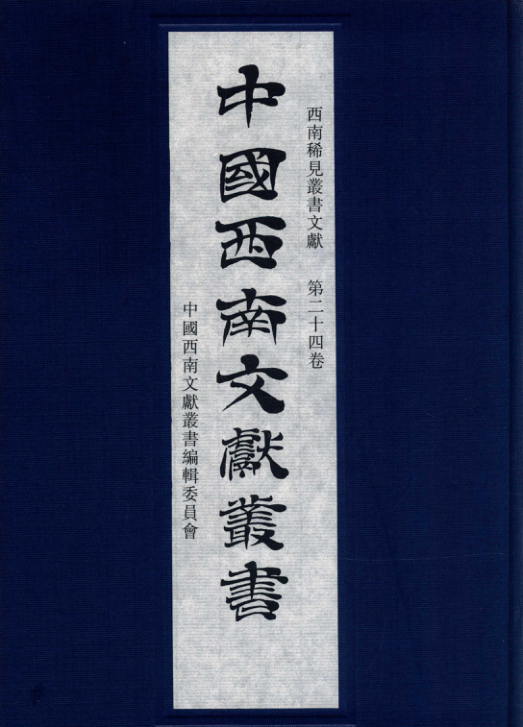 西南稀見叢書文獻 第二十四卷
中國西南文獻叢書
中國西南文獻叢書編輯委員會